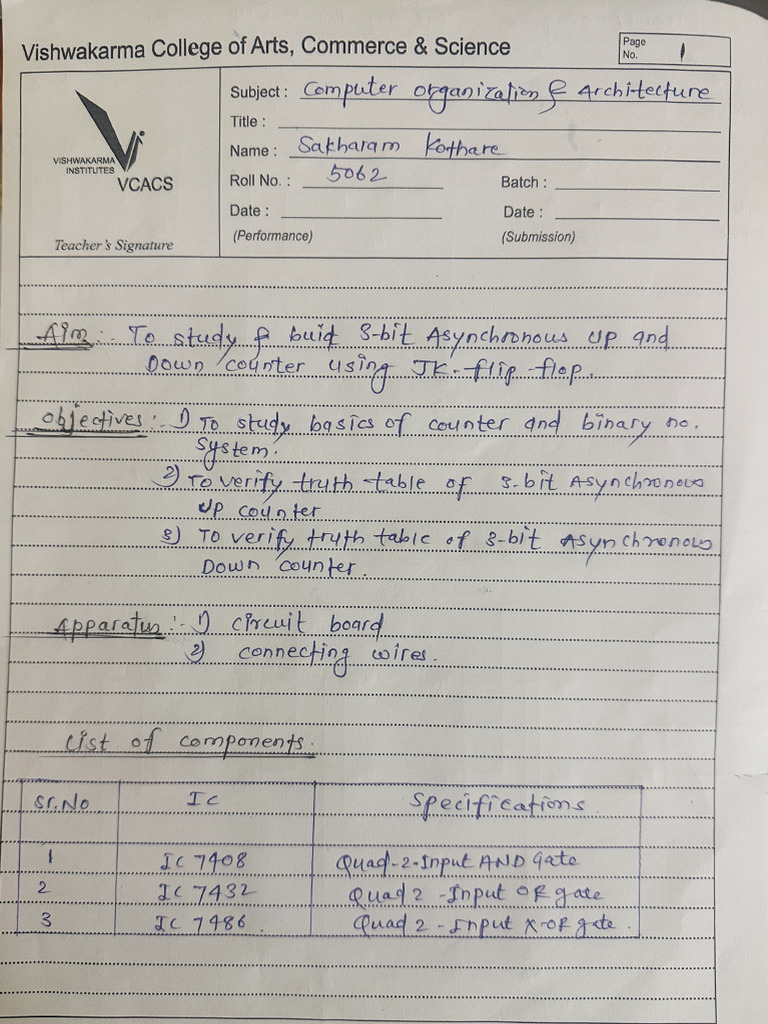 Vishwakarma College of Arts, Commerce & Science
Page No. 1
VISHWAKARMA INSTITUTES
VCACS
Teacher's Signature
Subject : Computer organization & Architecture
Title :
Name : Sakharam Kothare
Roll No. : 5062 Batch :
Date : Date :
(Performance) (Submission)
Aim :- To study & buid 3-bit Asynchronous UP and
Down counter using JK-flip-flop.
Objectives :- 1) To study basics of counter and binary no.
System.
2) To verify truth table of 3-bit Asynchronous
UP counter
3) To verify truth table of 3-bit Asynchronous
Down counter.
Apparatus :- 1) circuit board
2) connecting wires.
List of components.
Sr.No IC Specifications
1 IC 7408 Quad-2-Input AND Gate
2 IC 7432 Quad 2 -Input OR gate
3 IC 7486. Quad 2 -Input X-OR gate.